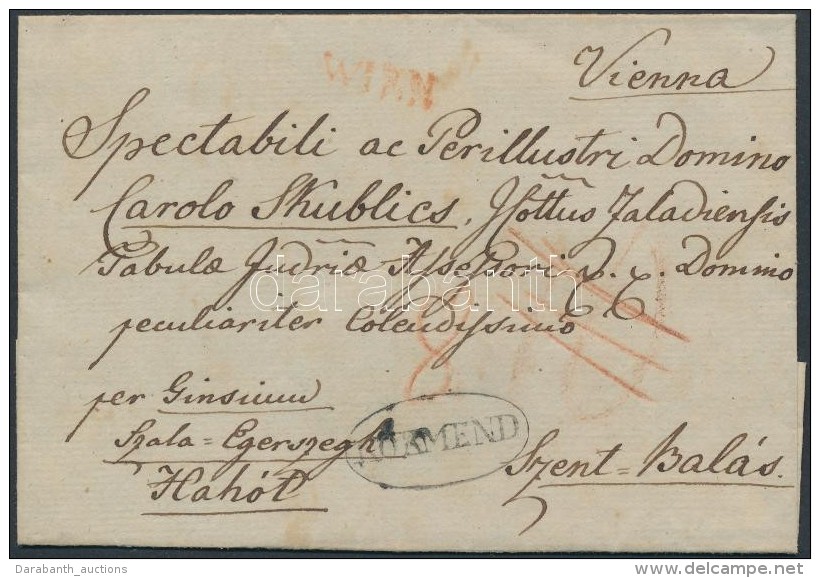 Vienna
WIEN
Spectabili ac Perillustri Domino
Carolo Skublics, Jcottus Zaladiensis
Tabulæ Judriæ Assessori &. &. Domino
peculiariter Colendissimo
per Ginsium
Szala=Egerszegh
Hahót
KÖRMEND
Szent=Balás.
darabanth
Darabanth_auctions
delcampe.net